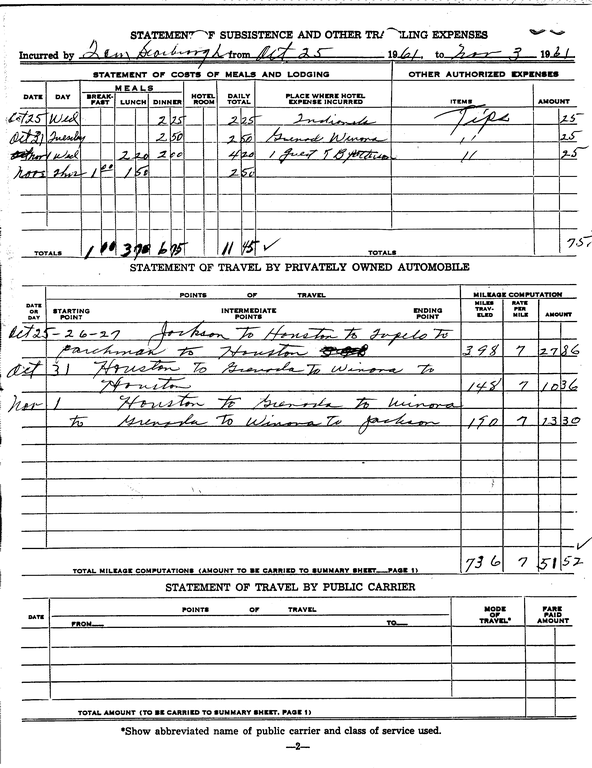 STATEMENT OF SUBSISTENCE AND OTHER TRAVELING EXPENSES
Incurred by Tom Scarbrough from Oct. 25 1961, to Nov 3 1961
STATEMENT OF COSTS OF MEALS AND LODGING OTHER AUTHORIZED EXPENSES
DATE DAY MEALS BREAK-FAST LUNCH DINNER HOTEL ROOM DAILY TOTAL PLACE WHERE HOTEL EXPENSE INCURRED ITEMS AMOUNT
Oct 25 Wed 2 25 2 25 Indianola Tips 25
Oct 31 Tuesday 2 50 2 50 Grenada Winona " 25
Nov 1 Wed 2 20 2 00 4 20 1 Guest T B " 25
Nov 2 Thur 1 00 1 50 2 50
TOTALS 1 00 3 70 6 75 11 45 ✓ TOTALS 75
STATEMENT OF TRAVEL BY PRIVATELY OWNED AUTOMOBILE
DATE OR DAY POINTS OF TRAVEL MILEAGE COMPUTATION
STARTING POINT INTERMEDIATE POINTS ENDING POINT MILES TRAV-ELED RATE PER MILE AMOUNT
Oct 25-26-27 Jackson to Houston to Tupelo to
Parchman to Houston 398 7 27 86
Oct 31 Houston to Grenada to Winona to
Houston 148 7 10 36
Nov 1 Houston to Grenada to Winona
to Grenada to Winona to Jackson 190 7 13 30
TOTAL MILEAGE COMPUTATIONS (AMOUNT TO BE CARRIED TO SUMMARY SHEET PAGE 1) 736 7 51 52 ✓
STATEMENT OF TRAVEL BY PUBLIC CARRIER
DATE POINTS OF TRAVEL MODE OF TRAVEL* FARE PAID AMOUNT
FROM TO
TOTAL AMOUNT (TO BE CARRIED TO SUMMARY SHEET. PAGE 1)
*Show abbreviated name of public carrier and class of service used.
—2—